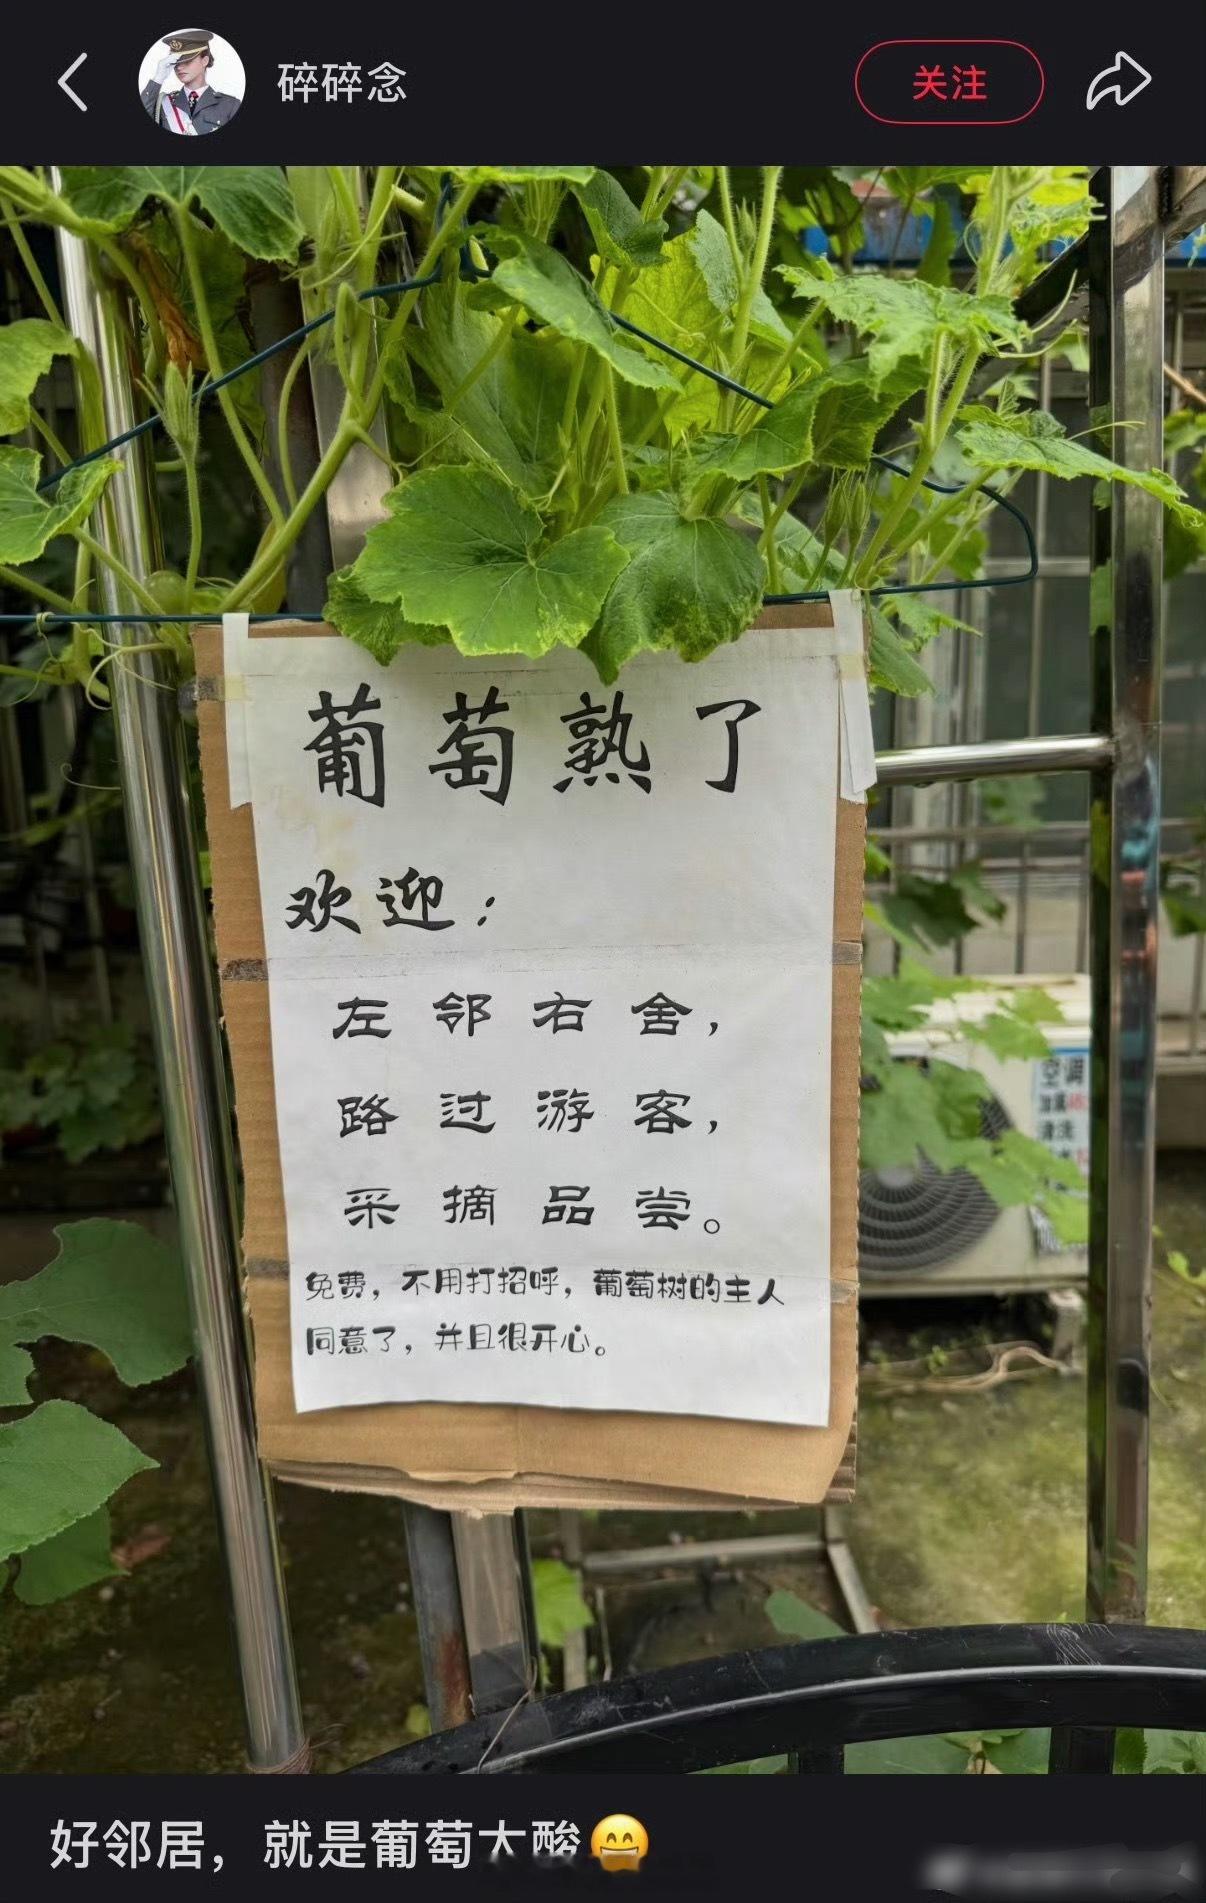 碎碎念
关注
葡萄熟了
欢迎：
左邻右舍，
路过游客，
采摘品尝。
免费，不用打招呼，葡萄树的主人
同意了，并且很开心。
空调
清洗
好邻居，就是葡萄太酸😁